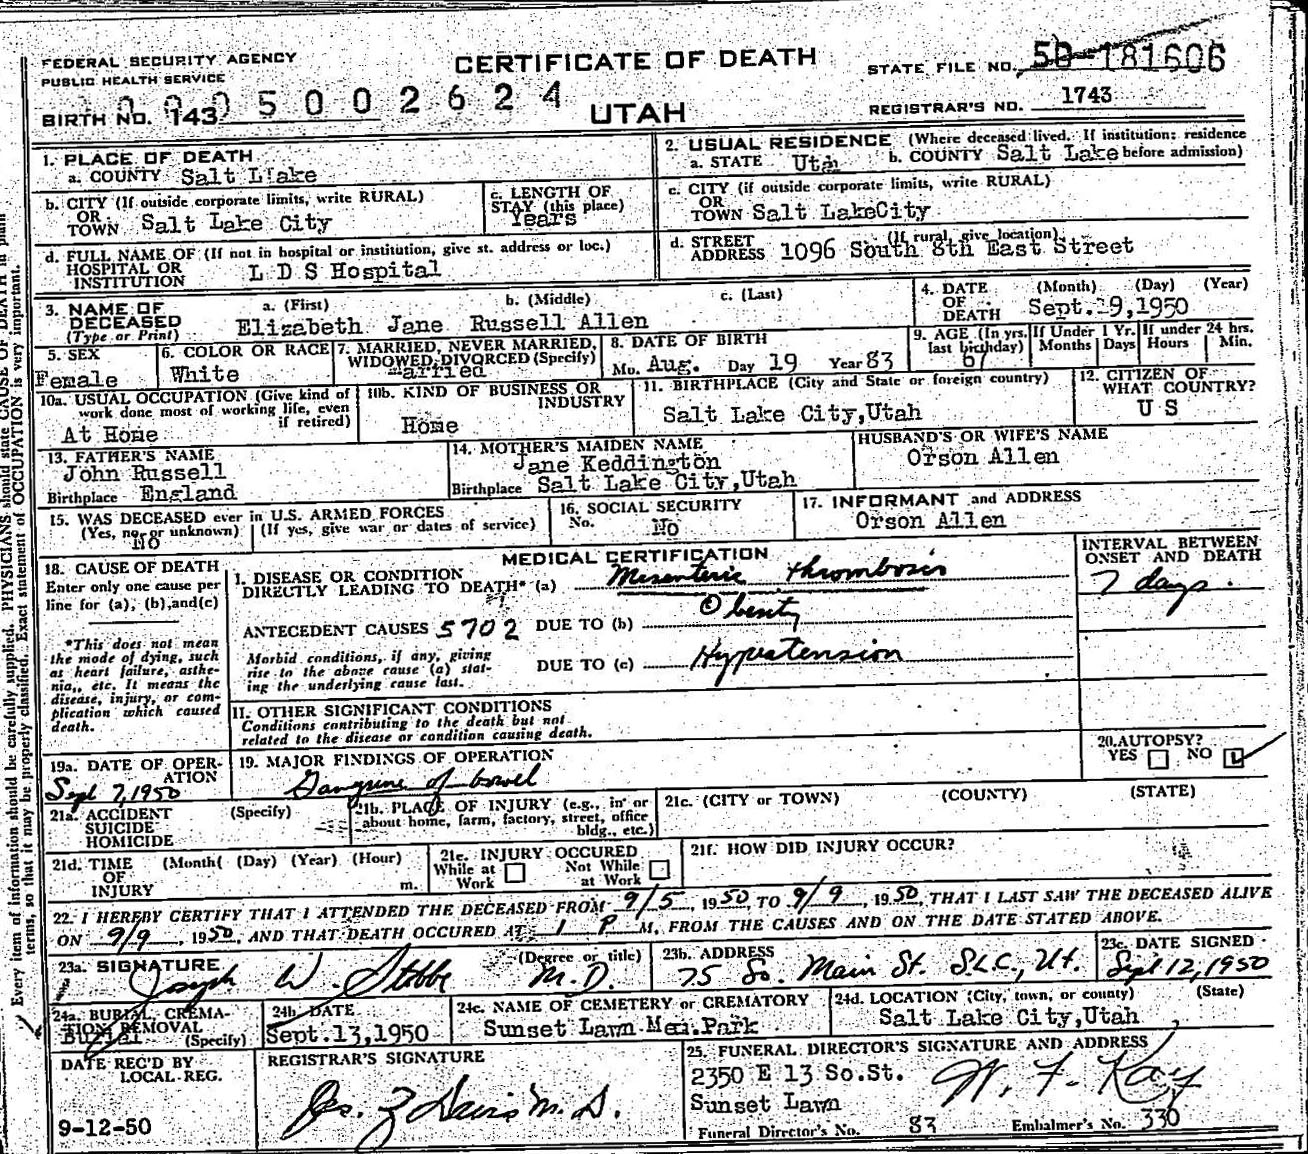 FEDERAL SECURITY AGENCY
PUBLIC HEALTH SERVICE
CERTIFICATE OF DEATH
UTAH
STATE FILE NO. 50-181606
REGISTRAR'S NO. 1743
5002624
BIRTH NO. 143
1. PLACE OF DEATH
a. COUNTY Salt Llake
2. USUAL RESIDENCE (Where deceased lived. If institution: residence
a. STATE Utah b. COUNTY Salt Lake before admission)
b. CITY (If outside corporate limits, write RURAL)
OR
TOWN Salt Lake City
c. LENGTH OF
STAY (this place)
Years
c. CITY (if outside corporate limits, write RURAL)
OR
TOWN Salt LakeCity
d. FULL NAME OF (If not in hospital or institution, give st. address or loc.)
HOSPITAL OR
INSTITUTION L D S Hospital
d. STREET (If rural, give location)
ADDRESS 1096 South 8th East Street
3. NAME OF
DECEASED
(Type or Print)
a. (First) b. (Middle) c. (Last)
Elizabeth Jane Russell Allen
4. DATE (Month) (Day) (Year)
OF
DEATH Sept. 9,1950
5. SEX
Female
6. COLOR OR RACE
White
7. MARRIED, NEVER MARRIED,
WIDOWED, DIVORCED (Specify)
Married
8. DATE OF BIRTH
Mo. Aug. Day 19 Year 83
9. AGE (In yrs.
last birthday)
67
If Under 1 Yr.
Months Days
If under 24 hrs.
Hours Min.
10a. USUAL OCCUPATION (Give kind of
work done most of working life, even
if retired)
At Home
10b. KIND OF BUSINESS OR
INDUSTRY
Home
11. BIRTHPLACE (City and State or foreign country)
Salt Lake City,Utah
12. CITIZEN OF
WHAT COUNTRY?
U S
13. FATHER'S NAME
John Russell
Birthplace England
14. MOTHER'S MAIDEN NAME
Jane Keddington
Birthplace Salt Lake City,Utah
HUSBAND'S OR WIFE'S NAME
Orson Allen
15. WAS DECEASED ever in U.S. ARMED FORCES
(Yes, no, or unknown) (If yes, give war or dates of service)
No
16. SOCIAL SECURITY
No. No
17. INFORMANT and ADDRESS
Orson Allen
18. CAUSE OF DEATH
Enter only one cause per
line for (a), (b),and(c)
*This does not mean
the mode of dying, such
as heart failure, asthe-
nia, etc. It means the
disease, injury, or com-
plication which caused
death.
MEDICAL CERTIFICATION
I. DISEASE OR CONDITION
DIRECTLY LEADING TO DEATH* (a) Mesenteric thrombosis
ANTECEDENT CAUSES 5702 DUE TO (b) Obesity
Morbid conditions, if any, giving
rise to the above cause (a) stat-
ing the underlying cause last.
DUE TO (c) Hypertension
INTERVAL BETWEEN
ONSET AND DEATH
7 days.
II. OTHER SIGNIFICANT CONDITIONS
Conditions contributing to the death but not
related to the disease or condition causing death.
19a. DATE OF OPER-
ATION
Sept 7, 1950
19. MAJOR FINDINGS OF OPERATION
Gangrene of bowel
20. AUTOPSY?
YES NO
21a. ACCIDENT (Specify)
SUICIDE
HOMICIDE
21b. PLACE OF INJURY (e.g., in or
about home, farm, factory, street, office
bldg., etc.)
21c. (CITY or TOWN) (COUNTY) (STATE)
21d. TIME (Month( (Day) (Year) (Hour)
OF
INJURY m.
21e. INJURY OCCURED
While at Work Not While at Work
21f. HOW DID INJURY OCCUR?
22. I HEREBY CERTIFY THAT I ATTENDED THE DECEASED FROM 9/5, 1950 TO 9/9, 1950, THAT I LAST SAW THE DECEASED ALIVE
ON 9/9, 1950, AND THAT DEATH OCCURED AT 1 P M, FROM THE CAUSES AND ON THE DATE STATED ABOVE.
23a. SIGNATURE (Degree or title)
Joseph W. Stobbe M.D.
23b. ADDRESS
75 So. Main St. SLC, Ut.
23c. DATE SIGNED
Sept 12, 1950
24a. BURIAL, CREMA-
TION, REMOVAL
(Specify)
Burial
24b. DATE
Sept.13,1950
24c. NAME OF CEMETERY or CREMATORY
Sunset Lawn Mem.Park
24d. LOCATION (City, town, or county) (State)
Salt Lake City,Utah
DATE REC'D BY
LOCAL REG.
9-12-50
REGISTRAR'S SIGNATURE
25. FUNERAL DIRECTOR'S SIGNATURE AND ADDRESS
2350 E 13 So.St. W. F. Kay
Sunset Lawn
Funeral Director's No. 83 Embalmer's No. 330
Every item of information should be carefully supplied. PHYSICIANS should state CAUSE OF DEATH in plain
terms, so that it may be properly classified. Exact statement of OCCUPATION is very important.